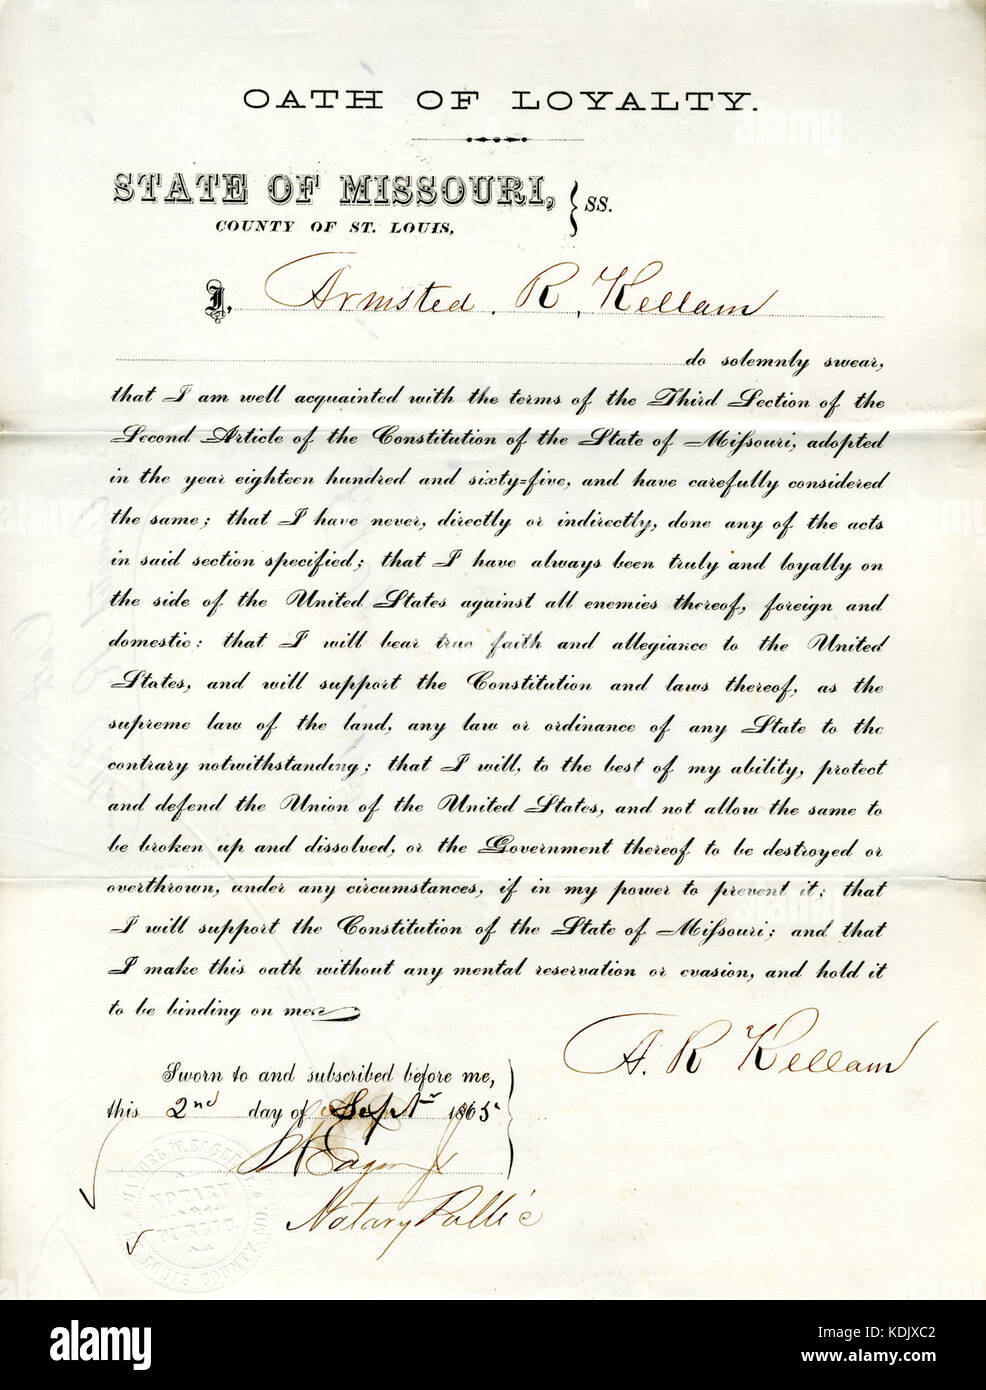 OATH OF LOYALTY.
STATE OF MISSOURI,
COUNTY OF ST. LOUIS, } SS.
I, Armsted. R. Kellam
do solemnly swear,
that I am well acquainted with the terms of the Third Section of the
Second Article of the Constitution of the State of Missouri, adopted
in the year eighteen hundred and sixty=five, and have carefully considered
the same; that I have never, directly or indirectly, done any of the acts
in said section specified; that I have always been truly and loyally on
the side of the United States against all enemies thereof, foreign and
domestic: that I will bear true faith and allegiance to the United
States, and will support the Constitution and laws thereof, as the
supreme law of the land, any law or ordinance of any State to the
contrary notwithstanding; that I will, to the best of my ability, protect
and defend the Union of the United States, and not allow the same to
be broken up and dissolved, or the Government thereof to be destroyed or
overthrown, under any circumstances, if in my power to prevent it; that
I will support the Constitution of the State of Missouri; and that
I make this oath without any mental reservation or evasion, and hold it
to be binding on me.
A. R Kellam
Sworn to and subscribed before me,
this 2nd day of Septr 1865
Notary Public
NOTARY
PUBLIC
LOUIS COUNTY, MO.
alamy
Image ID: KDJXC2
www.alamy.com